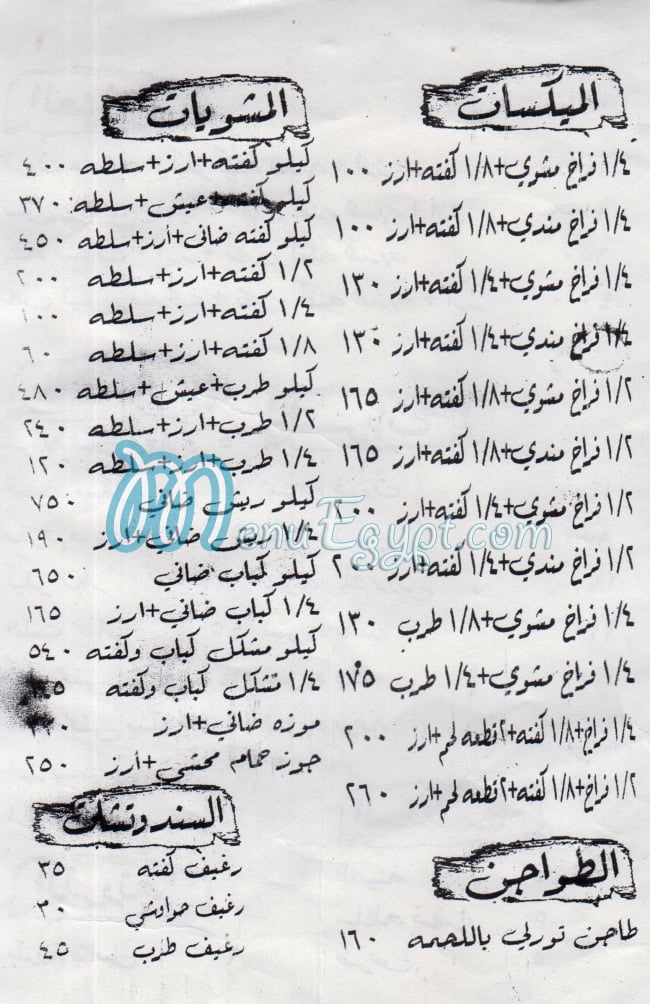 الميكسات
١/٤ فراخ مشوي+١/٨ كفته+ارز ١٠٠
١/٤ فراخ مندي+١/٨ كفته+ارز ١٠٠
١/٤ فراخ مشوي+١/٤ كفته+ارز ١٣٠
١/٤ فراخ مندي+١/٤ كفته+ارز ١٣٠
١/٢ فراخ مشوي+١/٨ كفته+ارز ١٦٥
١/٢ فراخ مندي+١/٨ كفته+ارز ١٦٥
١/٢ فراخ مشوي+١/٤ كفته+ارز ٢٠٠
١/٢ فراخ مندي+١/٤ كفته+ارز ٢٠٠
١/٤ فراخ مشوي+١/٨ طرب ١٣٠
١/٤ فراخ مشوي+١/٤ طرب ١٧٥
١/٤ فراخ+١/٨ كفته+٢قطعه لحم+ارز ٢٠٠
١/٢ فراخ+١/٨ كفته+٢قطعه لحم+ارز ٢٦٠
الطواجن
طاجن تورلي باللحمه ١٦٠
المشويات
كيلو كفته+ارز+سلطه ٤٠٠
كيلو كفته+عيش+سلطه ٣٧٠
كيلو كفته ضاني+ارز+سلطه ٤٥٠
١/٢ كفته+ارز+سلطه ٢٠٠
١/٤ كفته+ارز+سلطه ١٠٠
١/٨ كفته+ارز+سلطه ٦٠
كيلو طرب+عيش+سلطه ٤٨٠
١/٢ طرب+ارز+سلطه ٢٤٠
١/٤ طرب+ارز+سلطه ١٢٠
كيلو ريش ضاني ٧٥٠
١/٤ ريش ضاني+أرز ١٩٠
كيلو كباب ضاني ٦٥٠
١/٤ كباب ضاني+ارز ١٦٥
كيلو مشكل كباب وكفته ٥٤٠
١/٤ مشكل كباب وكفته
موزه ضاني+ارز
جوز حمام محشي+أرز ٢٥٠
السندوتشات
رغيف كفته ٣٥
رغيف حواوشي ٣٠
رغيف طرب ٤٥
MenuEgypt.com